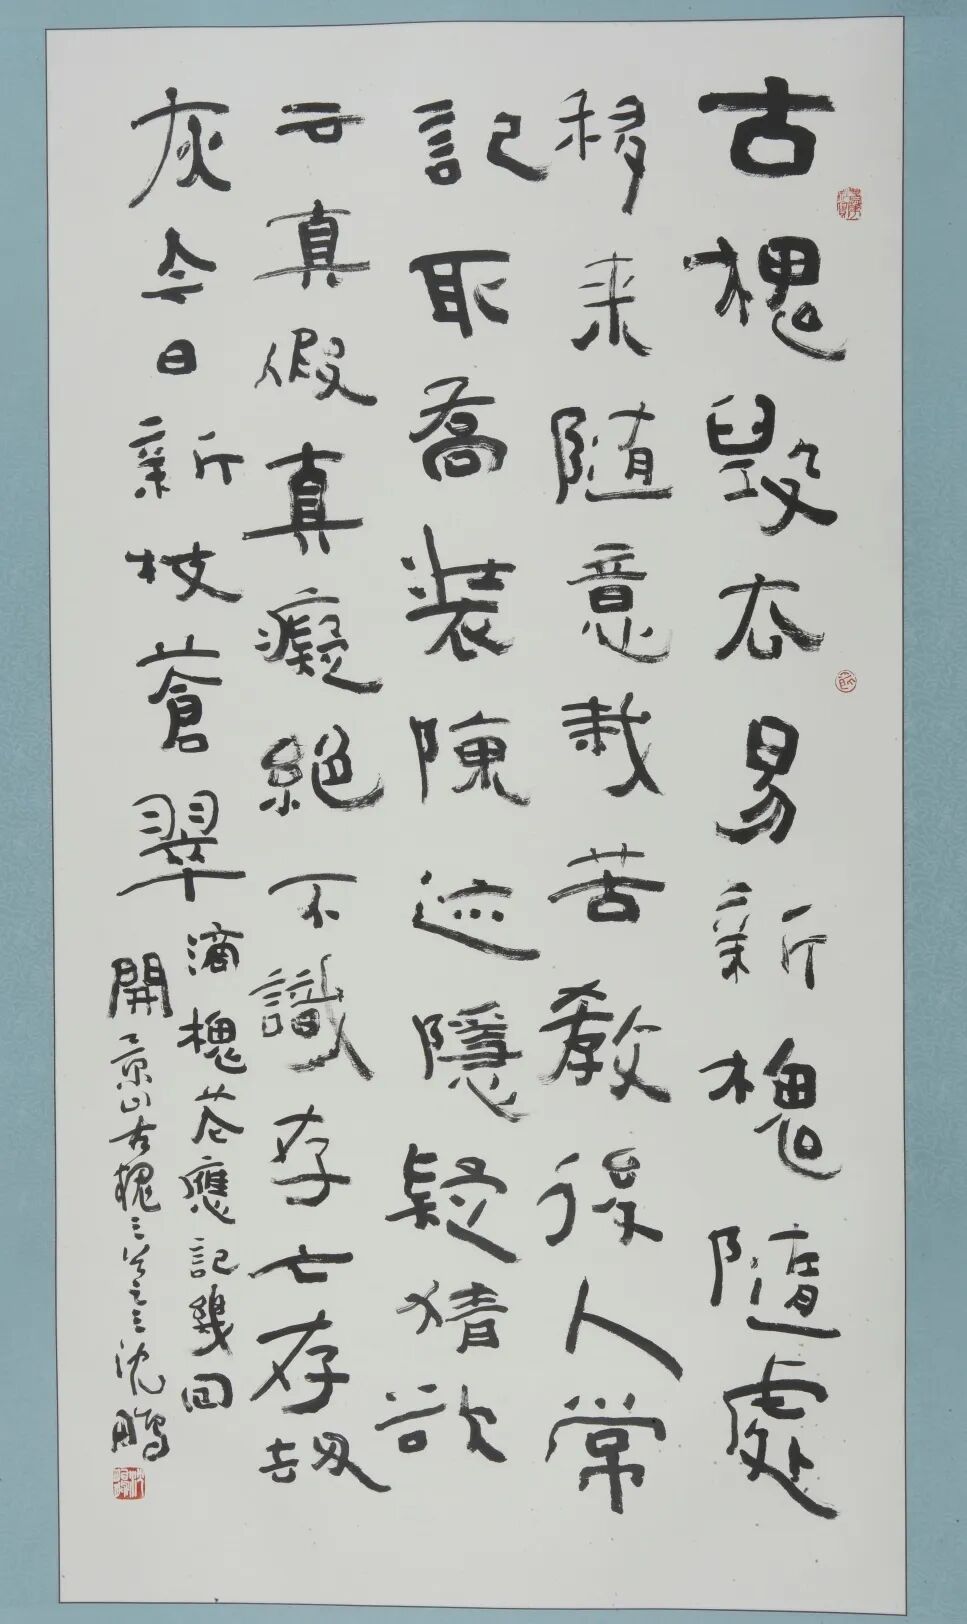 古槐毀去易新槐隨處
移来隨意栽苦教後人常
記取喬裝陳迹隱疑猜欲
云真假真癡絕不識存亡存劫
灰今日新枝蒼翠
滴槐花應記幾回
開 景山古槐三首之三沈鵬